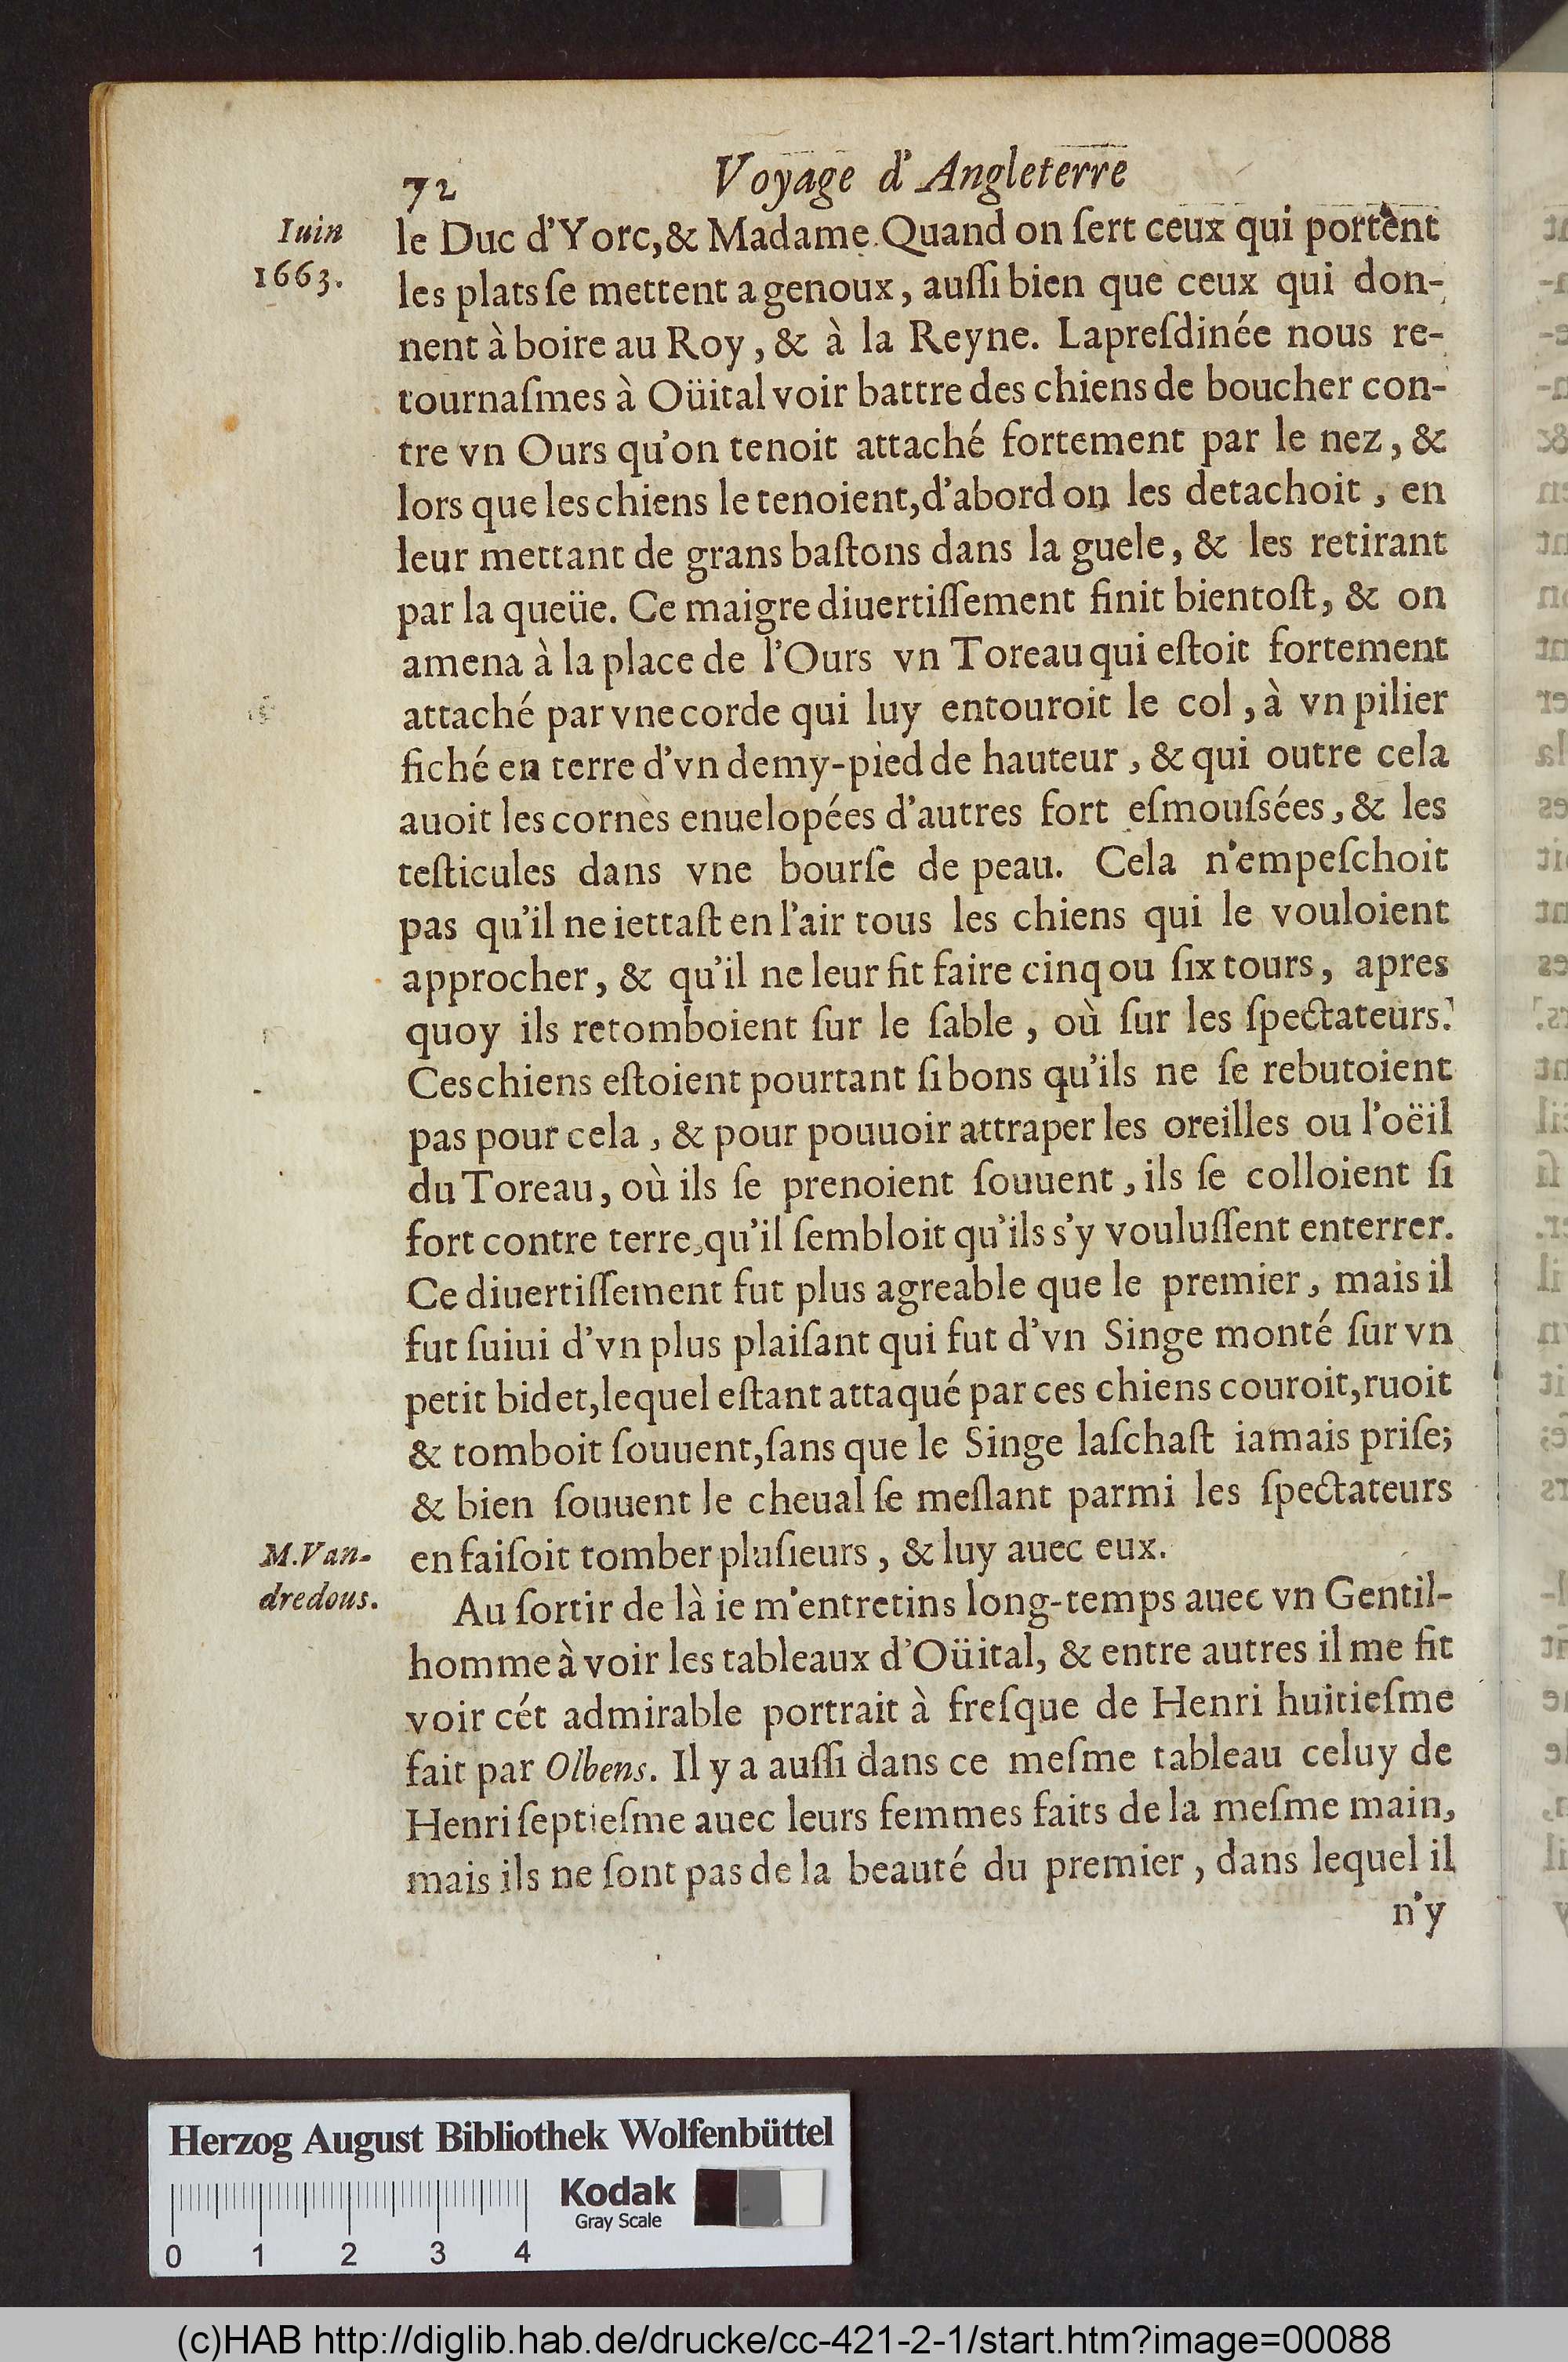 72 Voyage d'Angleterre
Iuin
1663.
le Duc d'Yorc,& Madame. Quand on ſert ceux qui portent
les plats ſe mettent a genoux, auſſi bien que ceux qui don-
nent à boire au Roy, & à la Reyne. Lapreſdinée nous re-
tournaſmes à Oüital voir battre des chiens de boucher con-
tre vn Ours qu'on tenoit attaché fortement par le nez, &
lors que les chiens le tenoient, d'abord on les detachoit, en
leur mettant de grans baſtons dans la guele, & les retirant
par la queüe. Ce maigre diuertiſſement finit bientoſt, & on
amena à la place de l'Ours vn Toreau qui eſtoit fortement
attaché par vne corde qui luy entouroit le col, à vn pilier
fiché en terre d'vn demy-pied de hauteur, & qui outre cela
auoit les cornes enuelopées d'autres fort eſmouſsées, & les
teſticules dans vne bourſe de peau. Cela n'empeſchoit
pas qu'il ne iettaſt en l'air tous les chiens qui le vouloient
approcher, & qu'il ne leur fit faire cinq ou ſix tours, apres
quoy ils retomboient ſur le ſable, où ſur les ſpectateurs.
Ces chiens eſtoient pourtant ſi bons qu'ils ne ſe rebutoient
pas pour cela, & pour pouuoir attraper les oreilles ou l'oëil
du Toreau, où ils ſe prenoient ſouuent, ils ſe colloient ſi
fort contre terre, qu'il ſembloit qu'ils s'y vouluſſent enterrer.
Ce diuertiſſement fut plus agreable que le premier, mais il
fut ſuiui d'vn plus plaiſant qui fut d'vn Singe monté ſur vn
petit bidet, lequel eſtant attaqué par ces chiens couroit, ruoit
& tomboit ſouuent, ſans que le Singe laſchaſt iamais priſe;
& bien ſouuent le cheual ſe meſlant parmi les ſpectateurs
en faiſoit tomber pluſieurs, & luy auec eux.
M. Van-
dredous.
Au ſortir de là ie m'entretins long-temps auec vn Gentil-
homme à voir les tableaux d'Oüital, & entre autres il me fit
voir cét admirable portrait à freſque de Henri huitieſme
fait par Olbens. Il y a auſſi dans ce meſme tableau celuy de
Henri ſeptieſme auec leurs femmes faits de la meſme main,
mais ils ne ſont pas de la beauté du premier, dans lequel il
n'y
Herzog August Bibliothek Wolfenbüttel
Kodak
Gray Scale
0 1 2 3 4
(c)HAB http://diglib.hab.de/drucke/cc-421-2-1/start.htm?image=00088